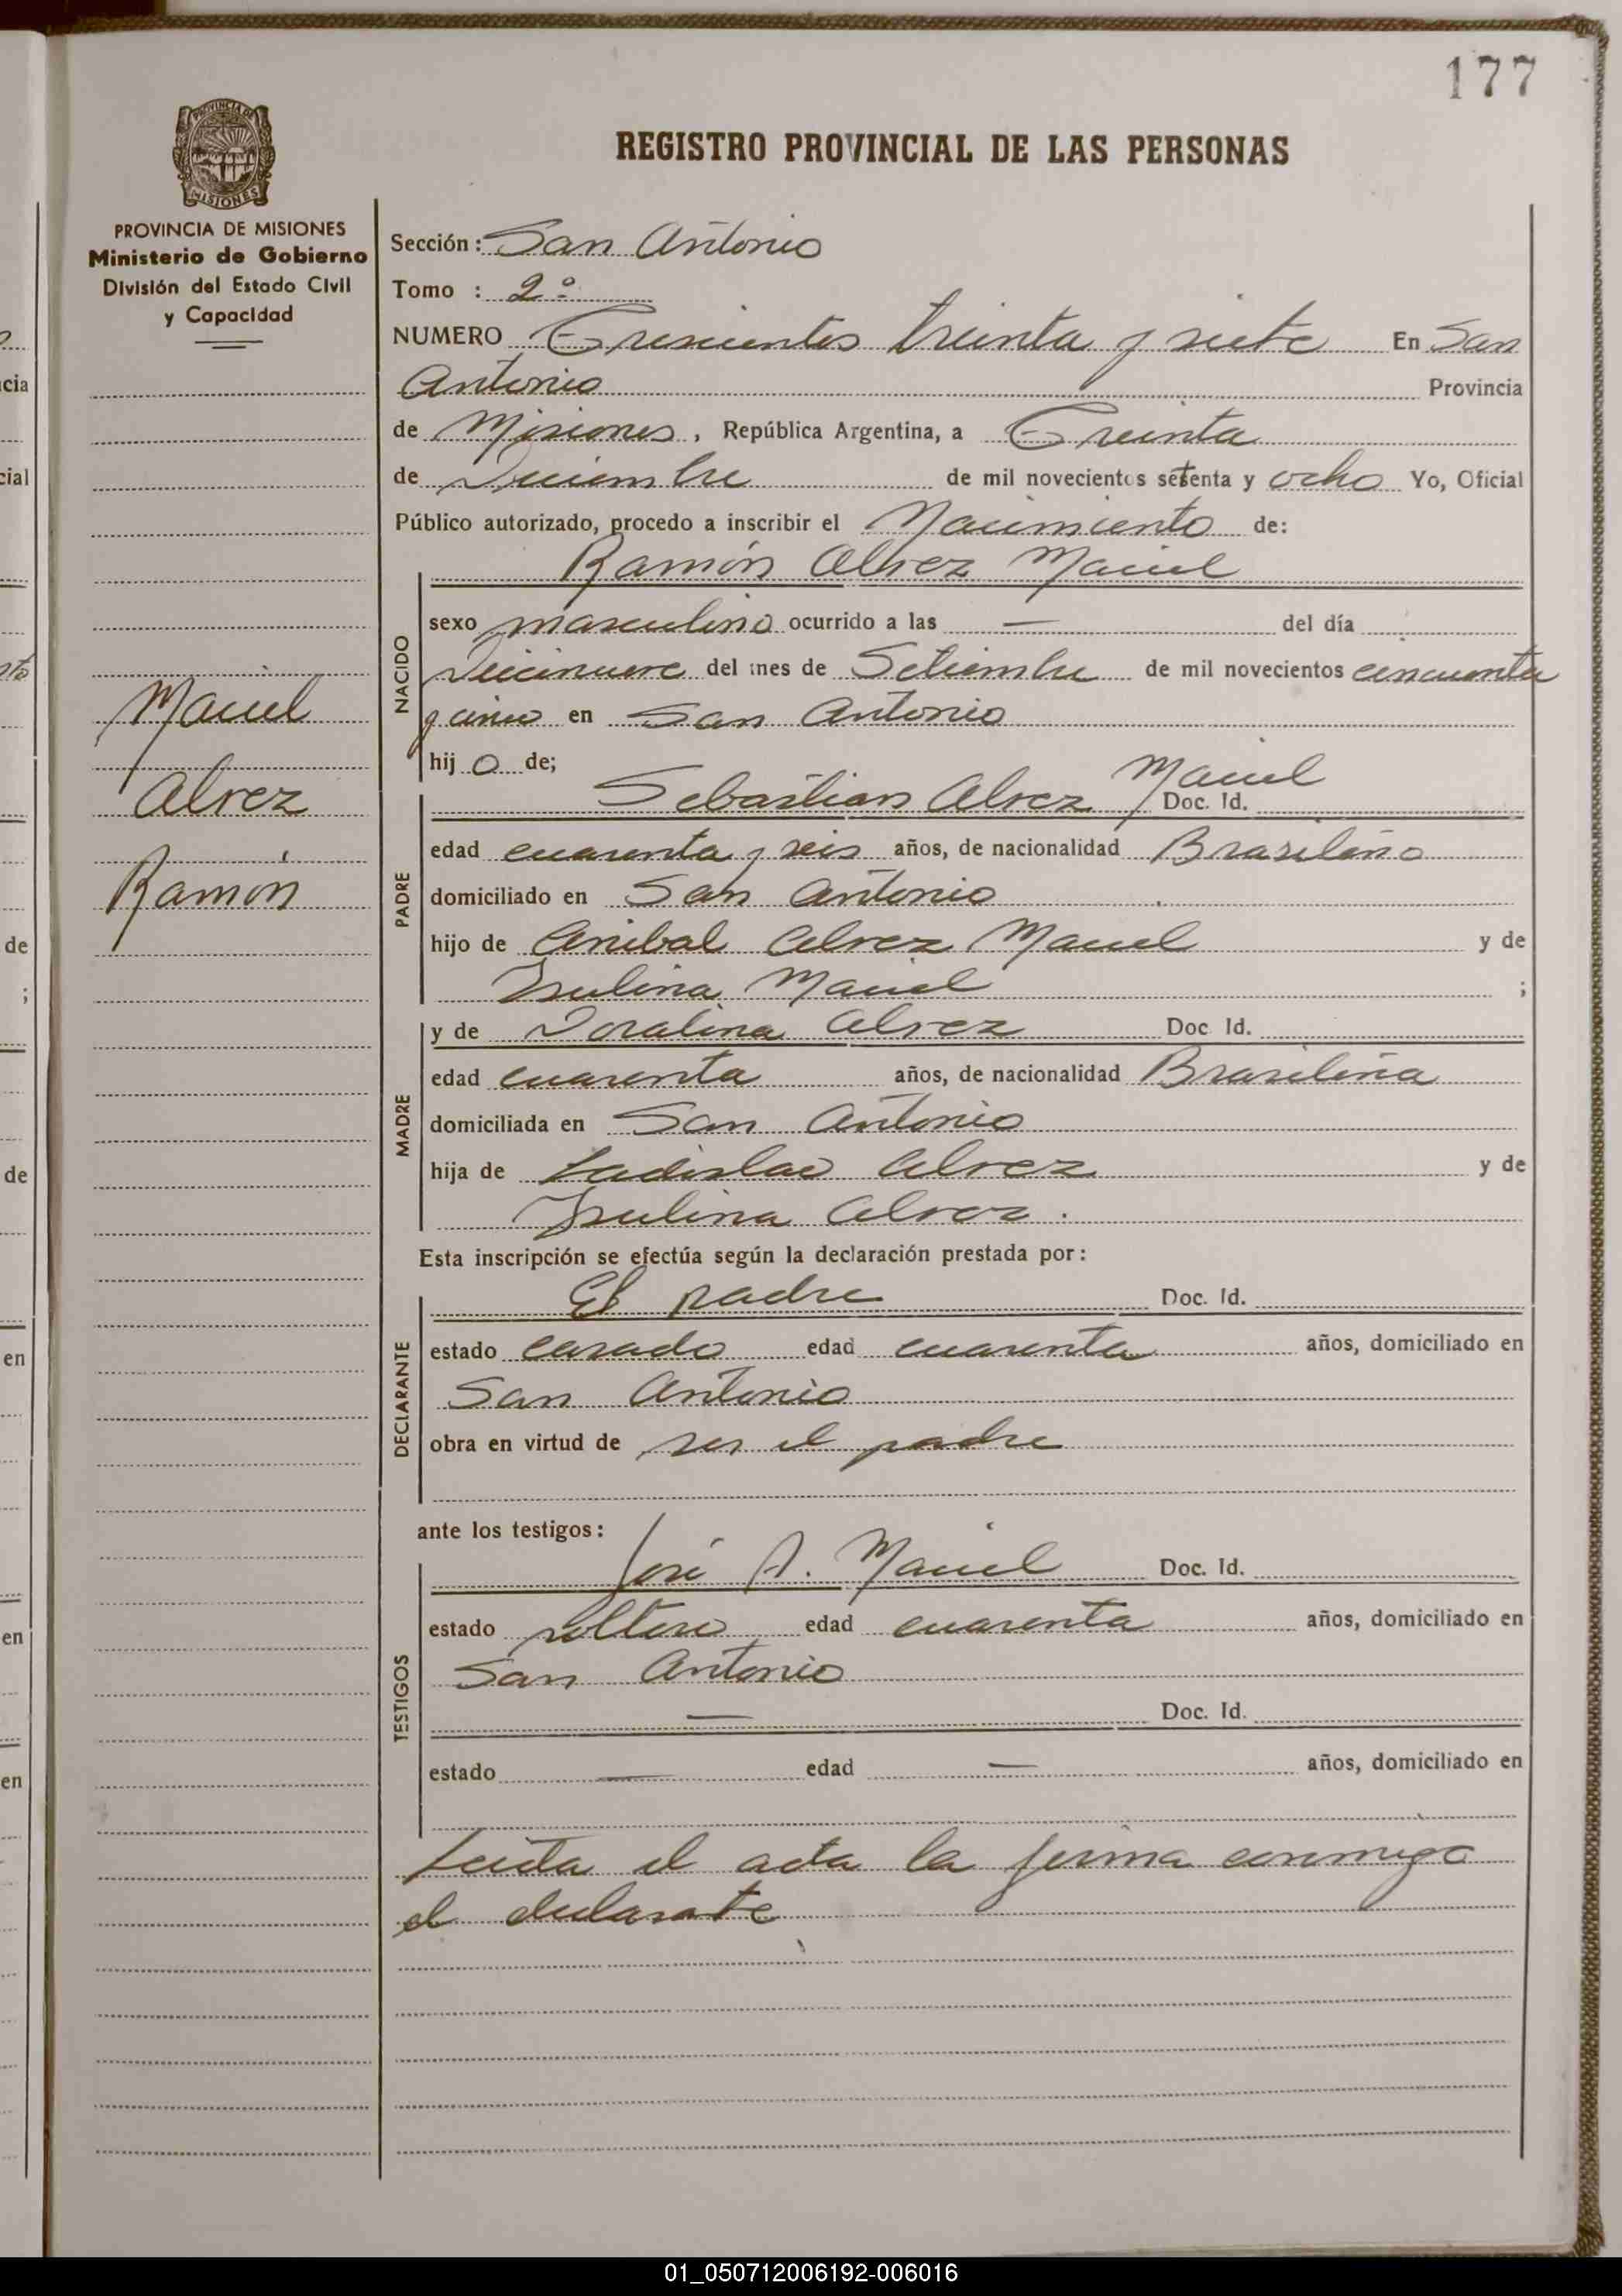 177
REGISTRO PROVINCIAL DE LAS PERSONAS
PROVINCIA DE MISIONES
PROVINCIA DE MISIONES
Ministerio de Gobierno
División del Estado Civil
y Capacidad
Maciel
Alvez
Ramón
Sección: San Antonio
Tomo : 2º
NUMERO Trescientos treinta y siete En San
Antonio Provincia
de Misiones, República Argentina, a Treinta
de Diciembre de mil novecientos setenta y ocho Yo, Oficial
Público autorizado, procedo a inscribir el Nacimiento de:
Ramón Alvez Maciel
NACIDO
sexo masculino ocurrido a las — del día
Diecinueve del mes de Setiembre de mil novecientos cincuenta
y cinco en San Antonio
hij o de;
PADRE
Sebastian Alvez Maciel Doc. Id.
edad cuarenta y seis años, de nacionalidad Brasileño
domiciliado en San Antonio
hijo de Anibal Alvez Maciel y de
Maciel ;
MADRE
y de Doralina Alvez Doc Id.
edad cuarenta años, de nacionalidad Brasileña
domiciliada en San Antonio
hija de Ladislao Alvez y de
Alvez
Esta inscripción se efectúa según la declaración prestada por:
DECLARANTE
El padre Doc. Id.
estado casado edad cuarenta años, domiciliado en
San Antonio
obra en virtud de ser el padre
ante los testigos:
TESTIGOS
José A. Maciel Doc. Id.
estado soltero edad cuarenta años, domiciliado en
San Antonio
— Doc. Id.
estado — edad — años, domiciliado en
Leida el acta la firma conmigo
el declarante
01_050712006192-006016